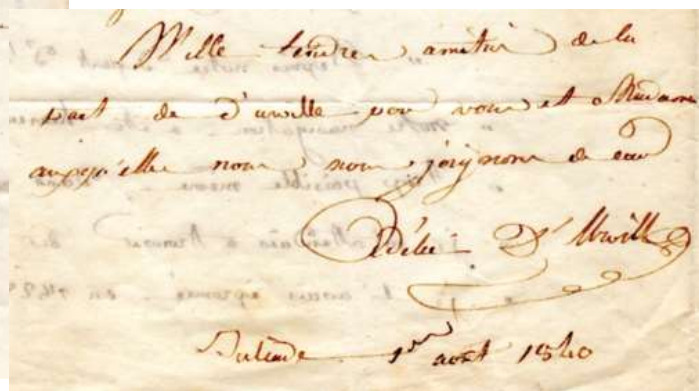 Mille tendres amitiés de la
part de d'urville pour vous et Madame
auxqu'elle nous nous joignons de
Adélie D'Urville
1er aout 1840